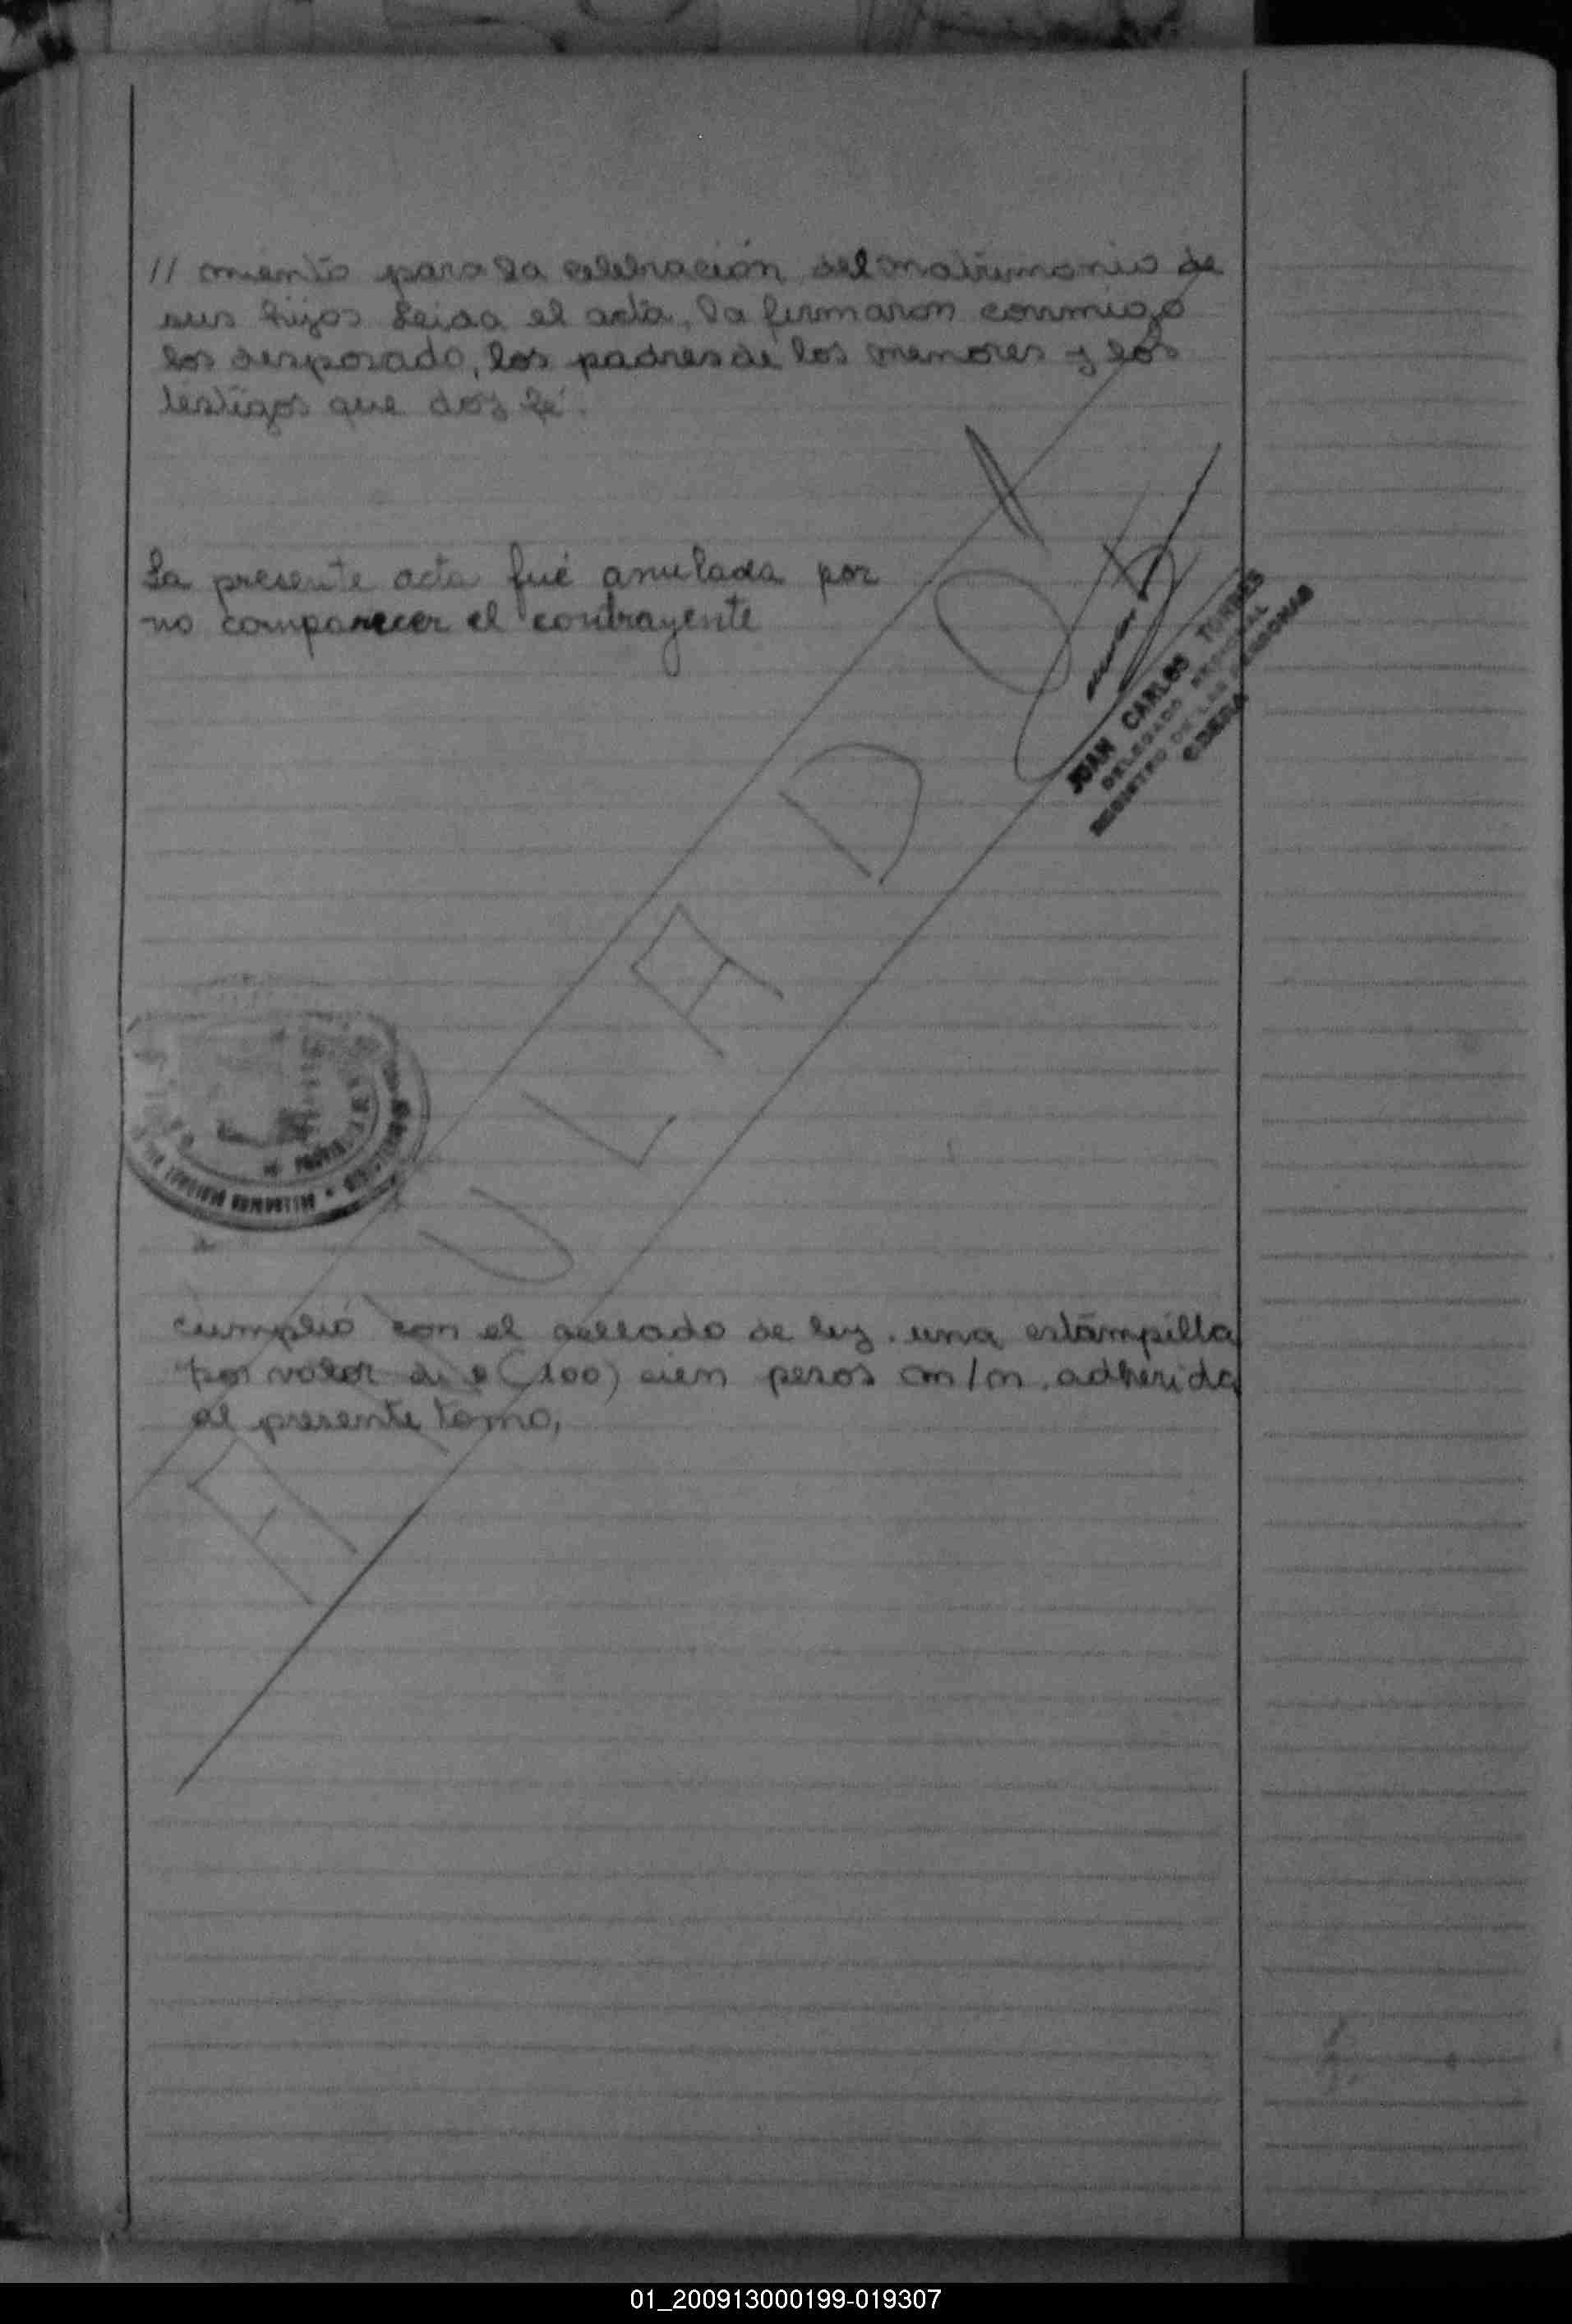 // miento para la celebración del matrimonio de
sus hijos Leida el acta, la firmaron conmigo
los desposado, los padres de los menores y los
testigos que doy fé.
La presente acta fué anulada por
no comparecer el contrayente
JUAN CARLOS
DELEGADO
REGISTRO DE LAS PERSONAS
ANULADO
cumplió con el sellado de ley. una estampilla
por valor de $ (100) cien pesos m/n. adherida
al presente tomo,
01_200913000199-019307